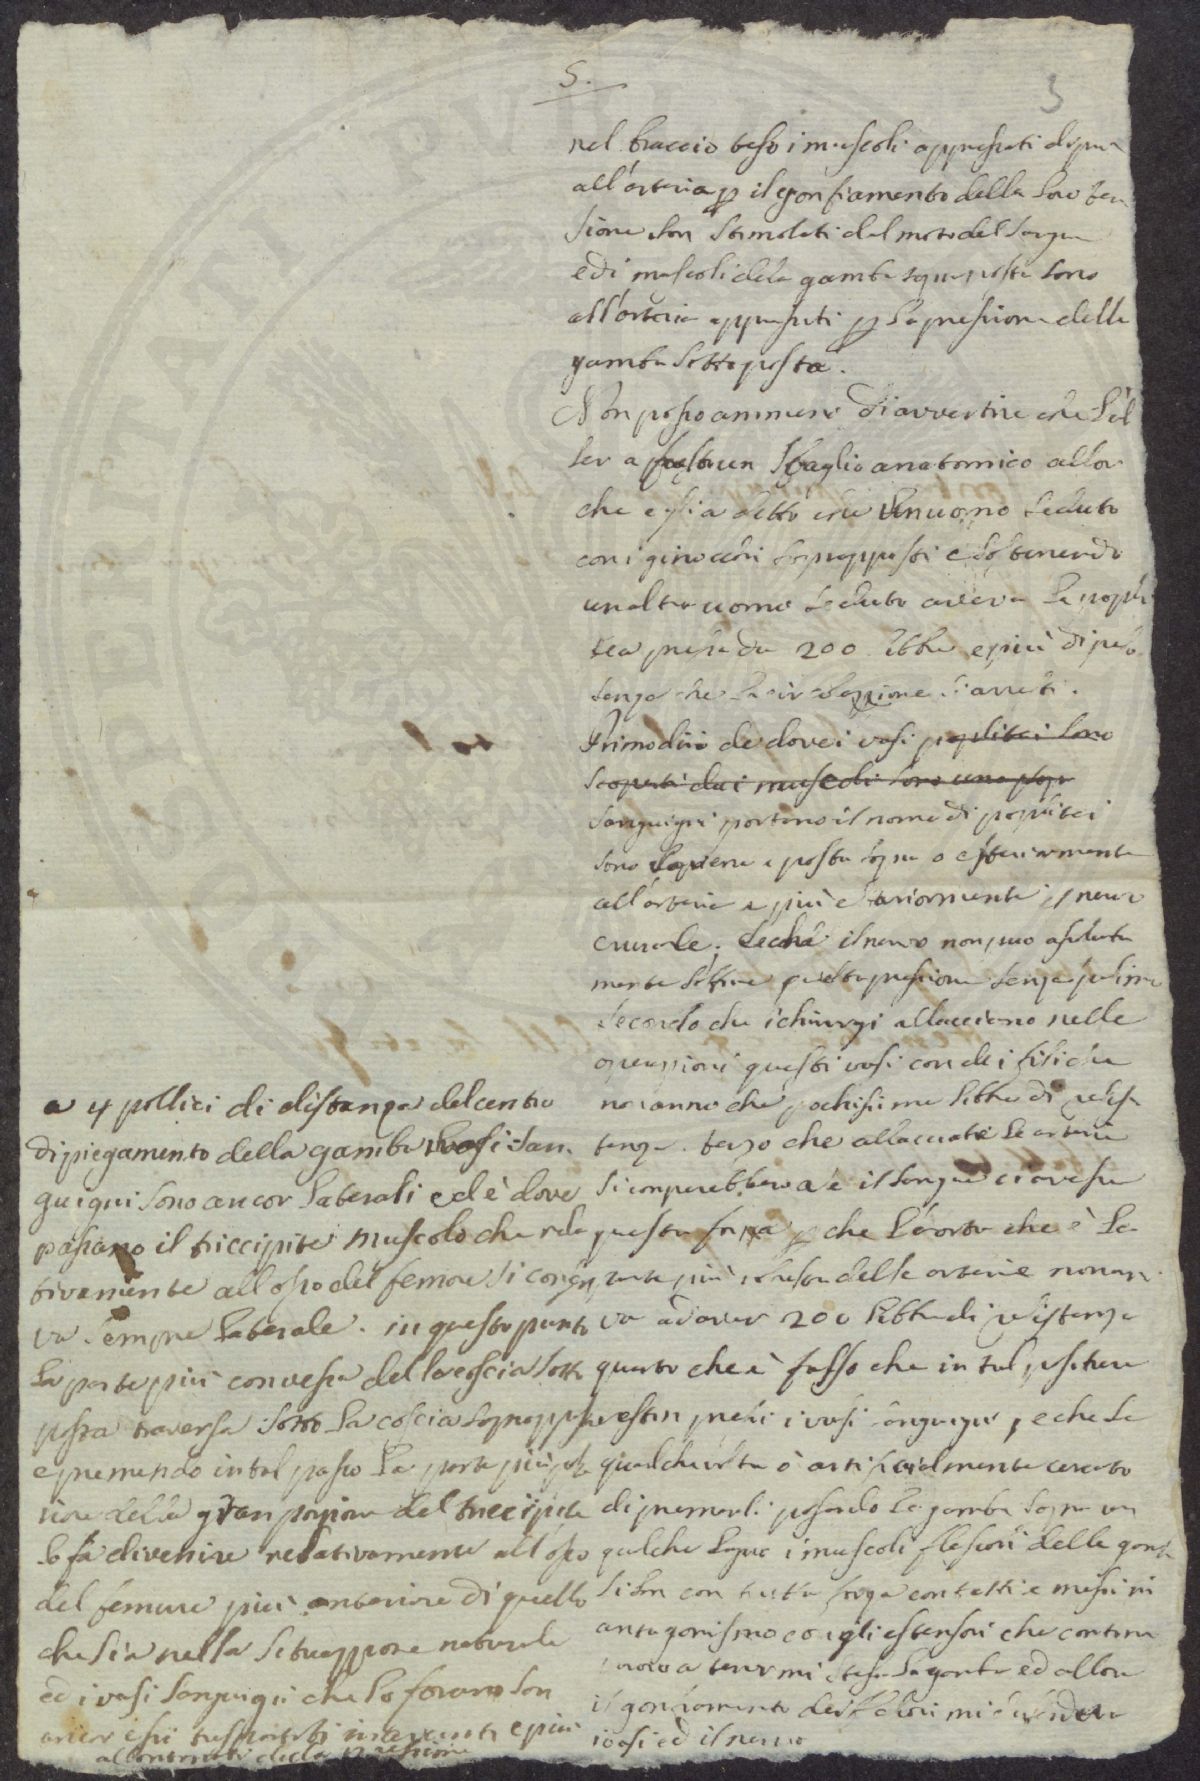 5.
3
nel braccio teso i muscoli appressati dopra
all'arteria p il gonfiamento della loro ten
sione son stimolati dal moto del sangue
ed i muscoli dela gamba sopraposta sono
all'arteria appressati p la pressione della
gamba sottoposta.
Non posso ammeno di avvertire che l'al
ler a un sbaglio anatomico allor
che egli a detto che un uomo seduto
con i ginocchi soprapposti e sostenendo
un altro uomo seduto aveva la popli
tea pressa da 200 libbre e più di peso
senza che la circolazione s'arresti.
Primo dirò che dove i vasi poplitei sono
scoperti dai muscoli sono una
sanguigni portano il nome di poplitei
sono la vena e posta sopra o esteriormente
all'arteria e più esteriormente il nervo
crurale; sicche il nervo non puo assoluta
mente soffrire questa pressione senza
secondo che i chirurgi allacciano nelle
operazioni questi vasi con dei fili che
non anno che pochissime libbre di resis
tenza. terzo che allacciate le arterie
si romperebbero se il sangue ci avesse
questa forza p che l'aorta che è la
parte più grossa delle arterie non arri
va ad aver 200 libbre di resistenza
quarto che è falso che in tal positura
restin pressi i vasi sanguigni, e che se
qualchevolta ò artificialmente cercato
di premerli posando la gamba sopra un
qualche legno i muscoli flessori della gamba
si son con tutta forza contratti e messi in
antagonismo co gli estensori che contin
uavo a tener mi stesa la gamba ed allora
il gonfiamento dei flessori mi
i vasi ed il nervo
a 4 pollici di distanza del centro
di piegamento della gamba i vasi san
guigni sono ancor laterali ed è dove
passano il triccipite muscolo che rela
tivamente all osso del femore si conser
va sempre laterale. in questo punto
la parte più convessa della coscia sotto
posta traversa sotto la coscia soprapposta
e premendo in tal passo la parte più poste
riore della gran porzione del triccipite
lo fa divenire relativamente all'osso
del femore più anteriore di quello
che sia nella situazzione naturale
ed i vasi sanguigni che lo forano son
ancor essi trasportati in avanti e più
allontanati dalla pressione